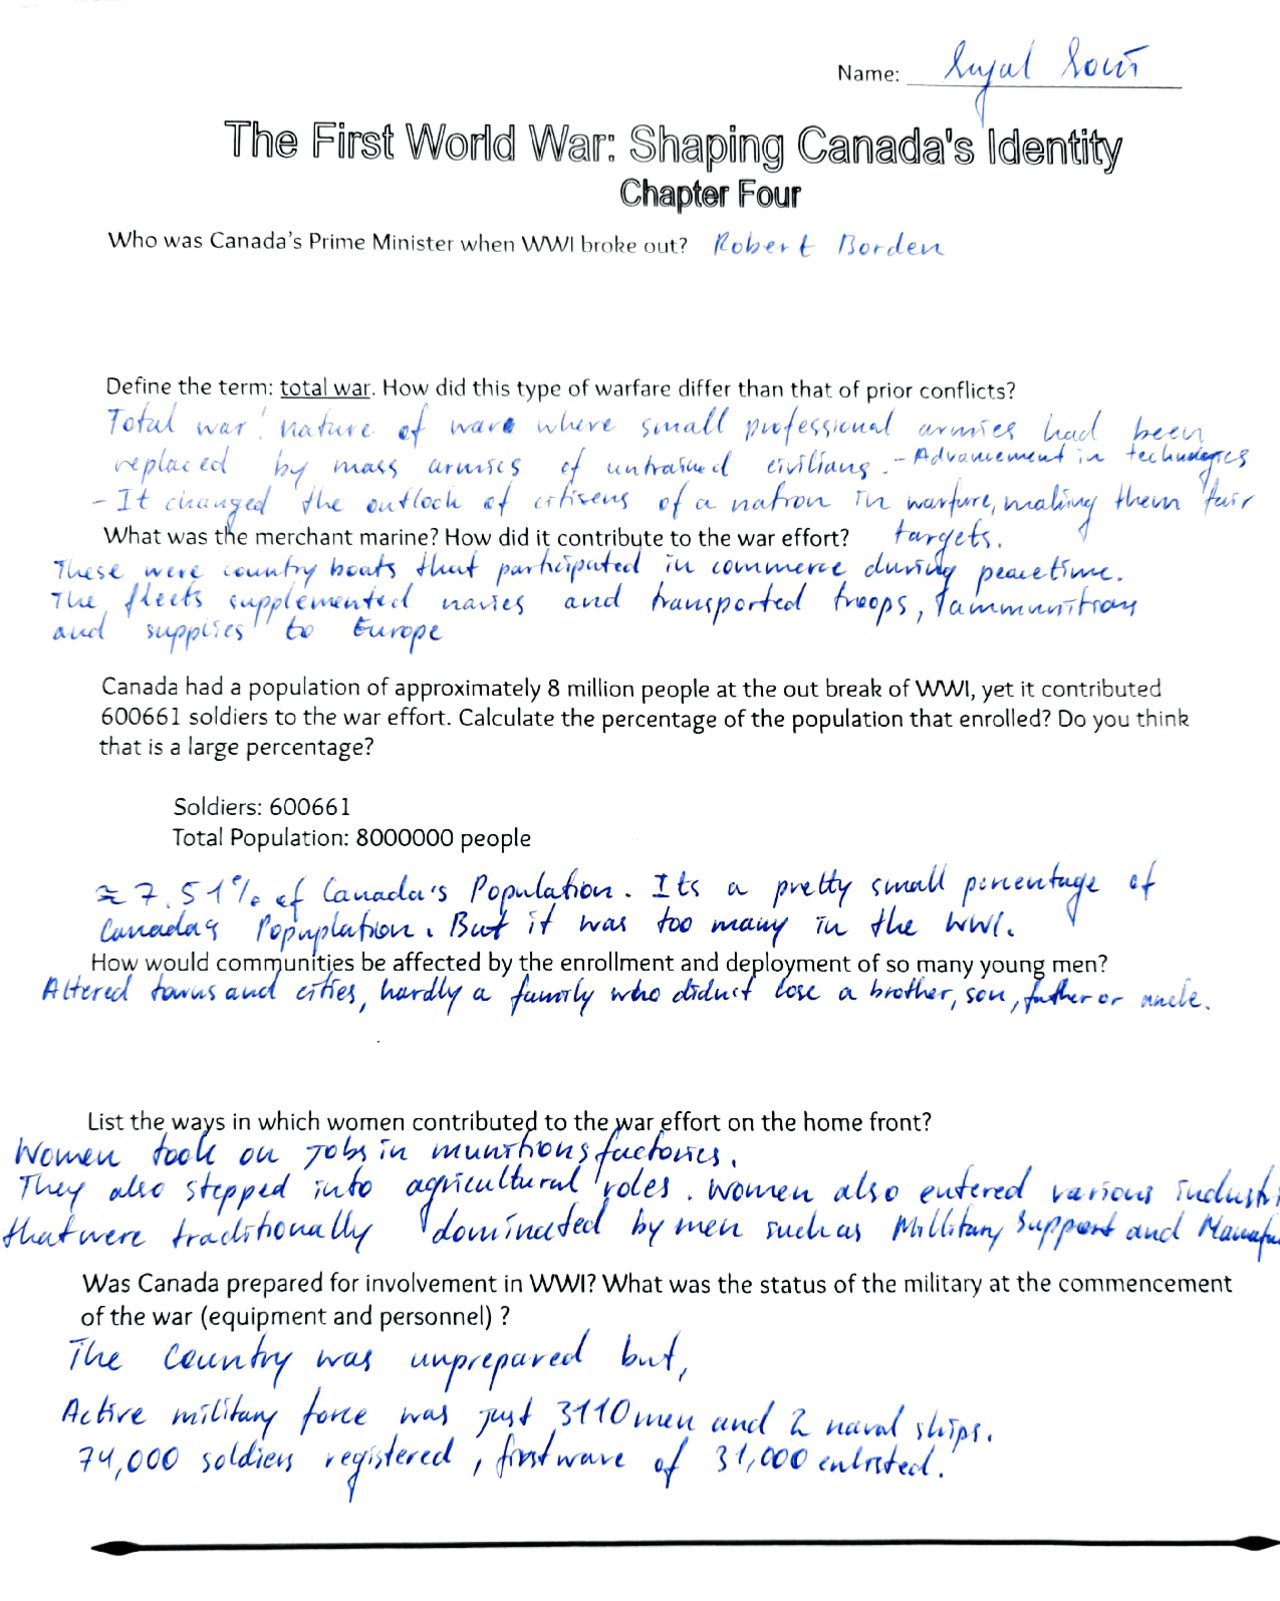 Name: Sujal Rout
The First World War: Shaping Canada's Identity
Chapter Four
Who was Canada's Prime Minister when WWI broke out? Robert Borden
Define the term: total war. How did this type of warfare differ than that of prior conflicts?
Total war: nature of ware where small professional armies had been
replaced by mass armies of untrained civilians. - Advancement in technologies
- It changed the outlook of citisens of a nation in warfare, making them fair
targets.
What was the merchant marine? How did it contribute to the war effort?
These were country boats that participated in commerce during peacetime.
The fleets supplemented navies and transported troops, ammunitions
and supplies to Europe
Canada had a population of approximately 8 million people at the out break of WWI, yet it contributed
600661 soldiers to the war effort. Calculate the percentage of the population that enrolled? Do you think
that is a large percentage?
Soldiers: 600661
Total Population: 8000000 people
≈ 7.51% of Canada's Population. Its a pretty small percentage of
Canada's Popuplation. But it was too many in the WWI.
How would communities be affected by the enrollment and deployment of so many young men?
Altered towns and cities, hardly a family who didn't lose a brother, son, father or uncle.
List the ways in which women contributed to the war effort on the home front?
Women took on jobs in munitions factories.
They also stepped into agricultural roles. Women also entered various industri
that were traditionally dominated by men such as Millitary support and Manufa
Was Canada prepared for involvement in WWI? What was the status of the military at the commencement
of the war (equipment and personnel) ?
The country was unprepared but,
Active military force was just 3110 men and 2 naval ships.
74,000 soldiers registered, first wave of 31,000 enlisted.